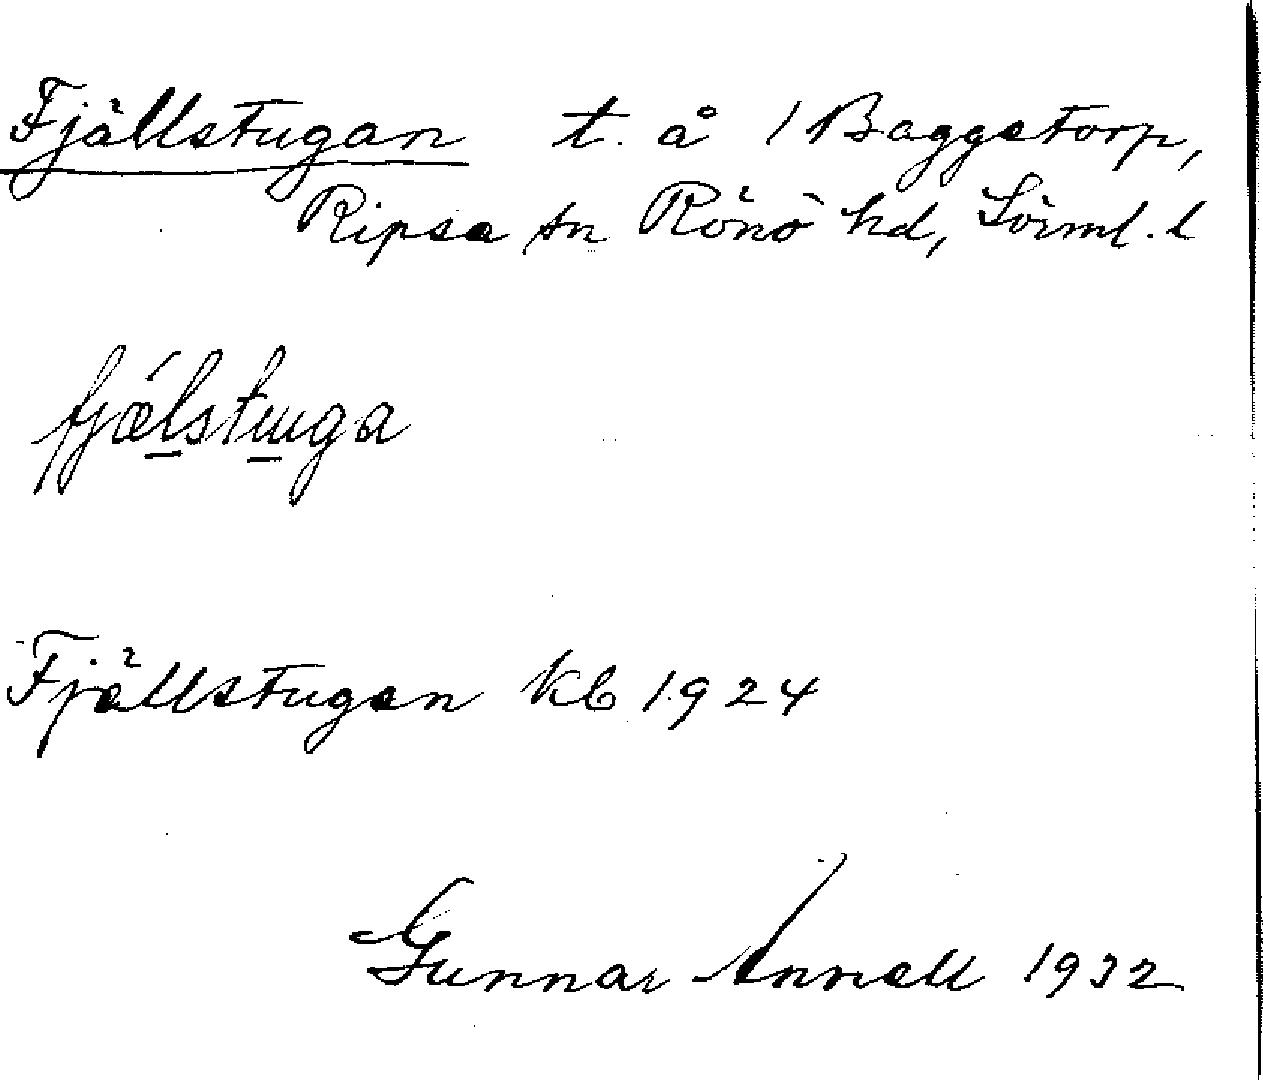 Fjällstugan t. å 1 Baggetorp,
Ripsa sn Rönö hd, Sörml. l
fjǽlstuga
Fjällstugan kb 1924
Gunnar Annell 1932